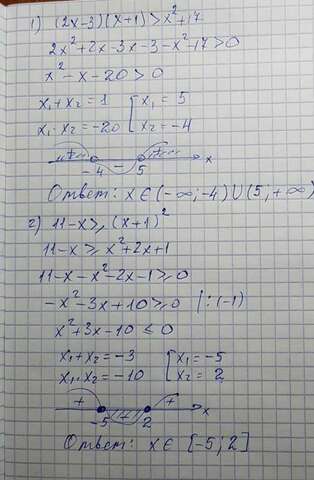 1) (2x-3)(x+1)>x²+17
2x²+2x-3x-3-x²-17>0
x²-x-20>0
x₁+x₂=1 [x₁=5
x₁·x₂=-20 [x₂=-4
+ - + x
-4 5
Ответ: x∈(-∞;-4)∪(5;+∞)
2) 11-x≥(x+1)²
11-x≥x²+2x+1
11-x-x²-2x-1≥0
-x²-3x+10≥0 |:(-1)
x²+3x-10≤0
x₁+x₂=-3 [x₁=-5
x₁·x₂=-10 [x₂=2
+ - + x
-5 2
Ответ: x∈[-5;2]